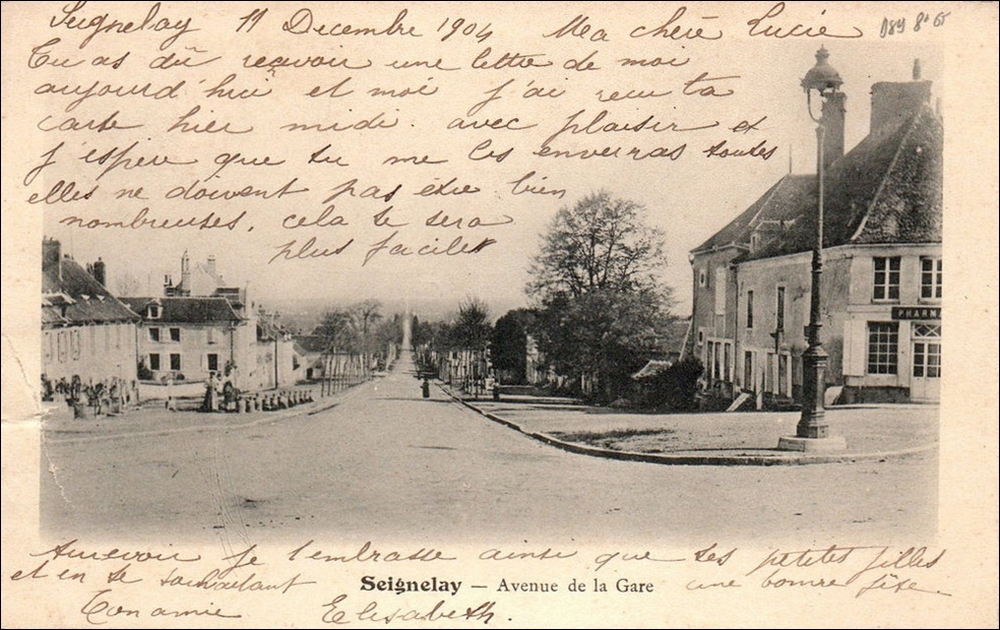 Seignelay 11 Decembre 1904 Ma chère Lucie
Tu as dû reçevoir une lettre de moi
aujourd'hui et moi j'ai recu ta
carte hier midi. avec plaisir et
j'espere que tu me les enverras toutes
elles ne doivent pas être bien
nombreuses, cela te sera
plus facile
PHARM
Aurevoir Je t'embrasse ainsi que tes petites filles
et en te souhaitant une bonne fête.
Seignelay — Avenue de la Gare
Ton amie Elisabeth.